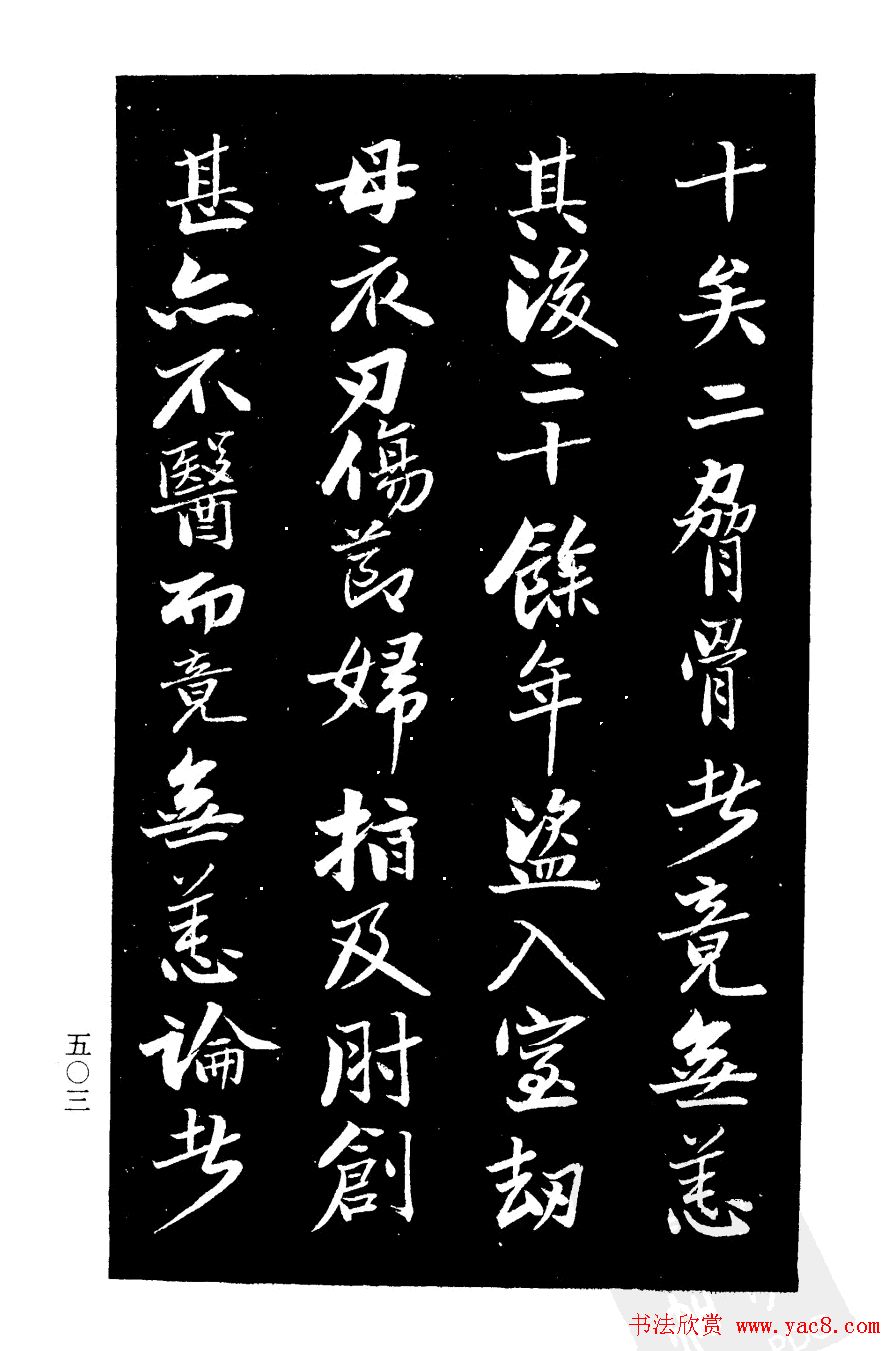 十矣二脅骨者竟無恙
其後二十餘年盜入室刧
母衣刃傷節婦指及肘創
甚亦不醫而竟無恙論者
五〇三
书法欣赏 www.yac8.com